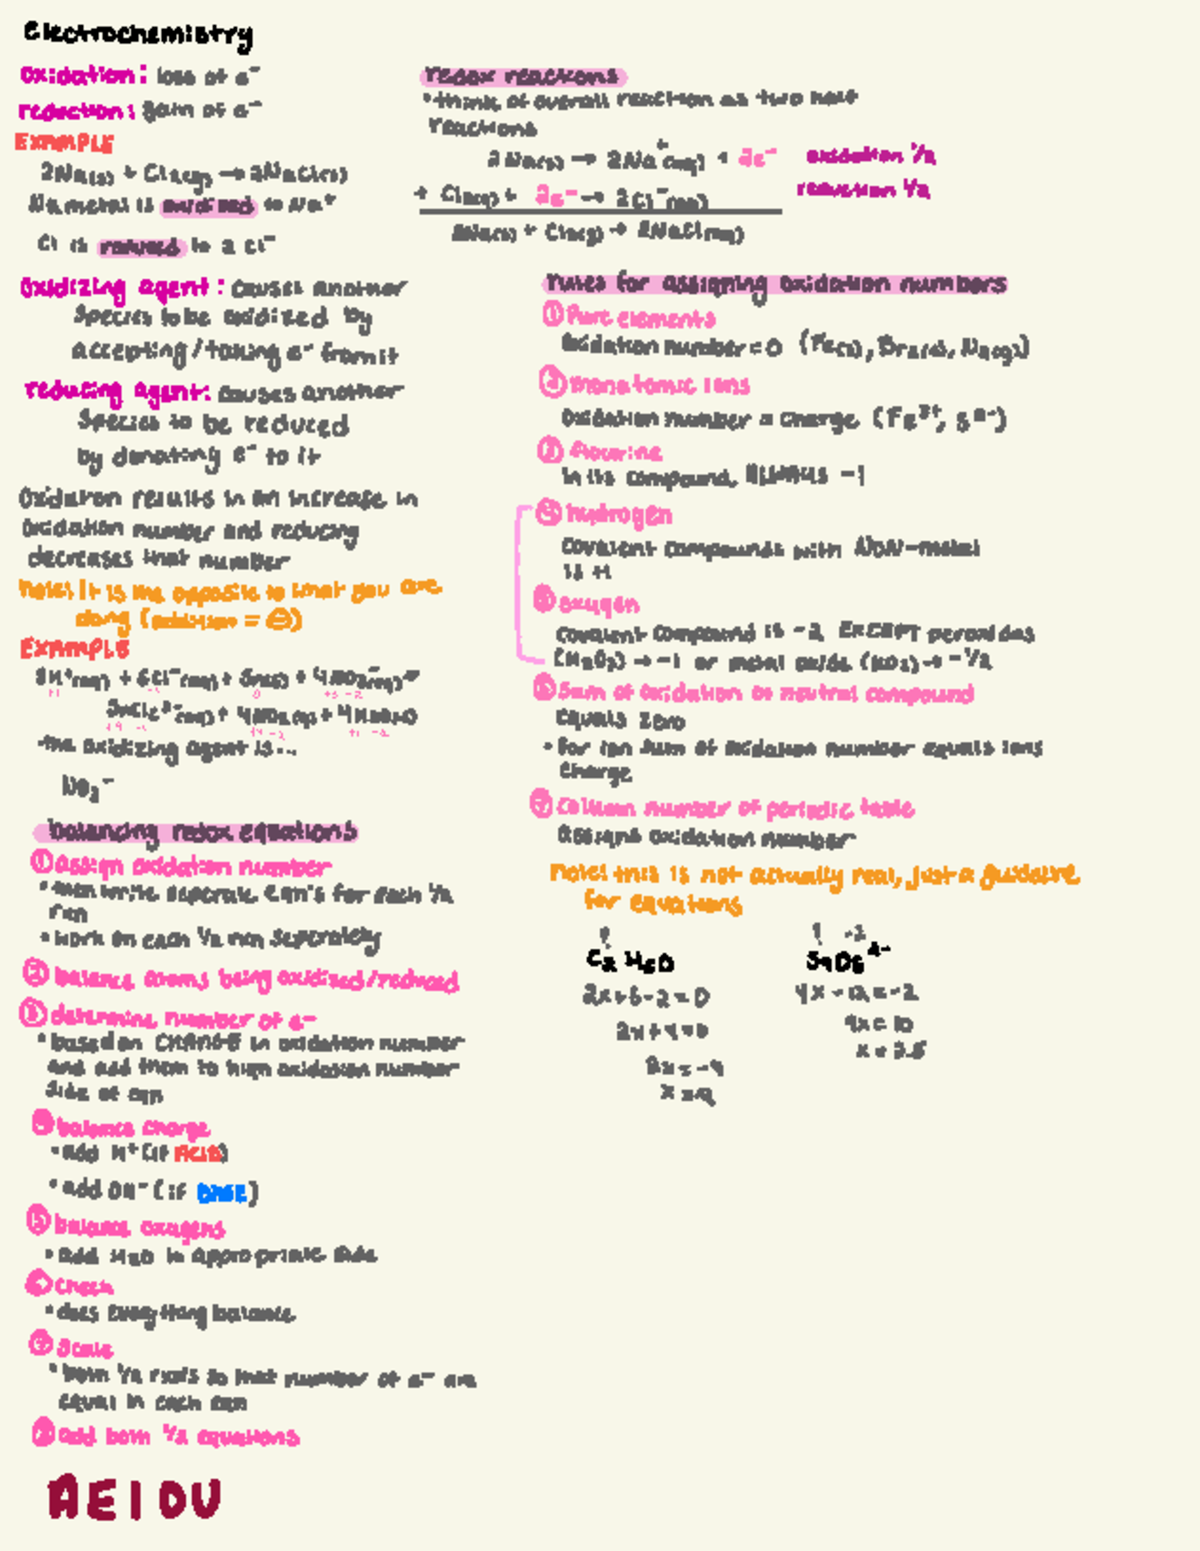 Electrochemistry
oxidation: loss of e⁻
reduction: gain of e⁻
EXAMPLE
2Na(s) + Cl2(g) → 2NaCl(s)
Na metal is oxidized to Na⁺
Cl is reduced to 2 Cl⁻
Oxidizing agent: causes another
species to be oxidized by
accepting/taking e⁻ from it
reducing agent: causes another
species to be reduced
by donating e⁻ to it
Oxidation results in an increase in
oxidation number and reducing
decreases that number
note! it is the opposite to what you are
doing (addition = ⊖)
EXAMPLE
8H⁺(aq) + 6Cl⁻(aq) + Sn(s) + 4NO3⁻(aq) →
SnCl6²⁻(aq) + 4NO2(g) + 4H2O(l)
-the oxidizing agent is...
NO3⁻
balancing redox equations
① assign oxidation number
• then write seperate eqn's for each 1/2
rxn
• work on each 1/2 rxn seperately
② balance atoms being oxidized/reduced
③ determine number of e⁻
• based on CHANGE in oxidation number
and add them to high oxidation number
side of eqn
④ balance charge
• add H⁺ (if ACID)
• add OH⁻ (if BASE)
⑤ balance oxygens
• add H2O to appropriate side
⑥ check
• does everything balance
⑦ Scale
• both 1/2 rxn's so that number of e⁻ are
equal in each eqn
⑧ add both 1/2 equations
AEIOU
redox reactions
• think of overall reaction as two half
reactions
2Na(s) → 2Na⁺(aq) + 2e⁻ oxidation 1/2
+ Cl2(g) + 2e⁻ → 2Cl⁻(aq) reduction 1/2
2Na(s) + Cl2(g) → 2NaCl(aq)
rules for assigning oxidation numbers
① Pure elements
Oxidation number = 0 (Fe(s), Br2(l), N2(g))
② monatomic ions
Oxidation number = charge (Fe³⁺, S²⁻)
③ flourine
in its compound, ALWAYS -1
④ hydrogen
covalent compounds with NON-metal
is +1
⑤ oxygen
covalent compound is -2 EXCEPT peroxides
(H2O2) → -1 or metal oxide (KO2) → -1/2
⑥ Sum of oxidation of neutral compound
equals zero
• for ion sum of oxidation number equals ions
charge
⑦ column number of periodic table
assigns oxidation number
note! this is not actually real, just a guideline
for equations
C2H6O
2x+6-2=0
2x+4=0
2x=-4
x=-2
? -2
S4O6²⁻
4x-12=-2
4x=10
x=2.5